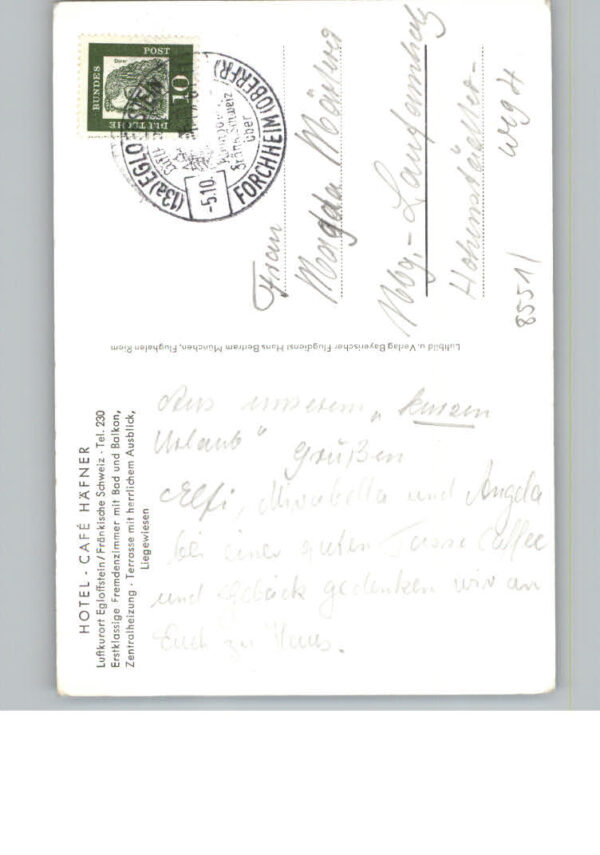 HOTEL - CAFÉ HÄFNER
Luftkurort Egloffstein/Fränkische Schweiz · Tel. 230
Erstklassige Fremdenzimmer mit Bad und Balkon,
Zentralheizung · Terrasse mit herrlichem Ausblick,
Liegewiesen
Aus unserem „kurzen
Urlaub" grüßen
Elfi, Mirabella und Angela
bei einer guten Tasse Caffee
und Gebäck gedenken wir an
Euch zu Haus.
Luftbild u. Verlag Bayerischer Flugdienst Hans Bertram München, Flughafen Riem
DEUTSCHE
BUNDES
POST
10
(13a) EGLOFFSTEIN
über
FORCHHEIM (OBERFR)
-5.10.
Frau
Magda
Nbg.- Laufamholz
Hohenstädter-
weg 4
8551/